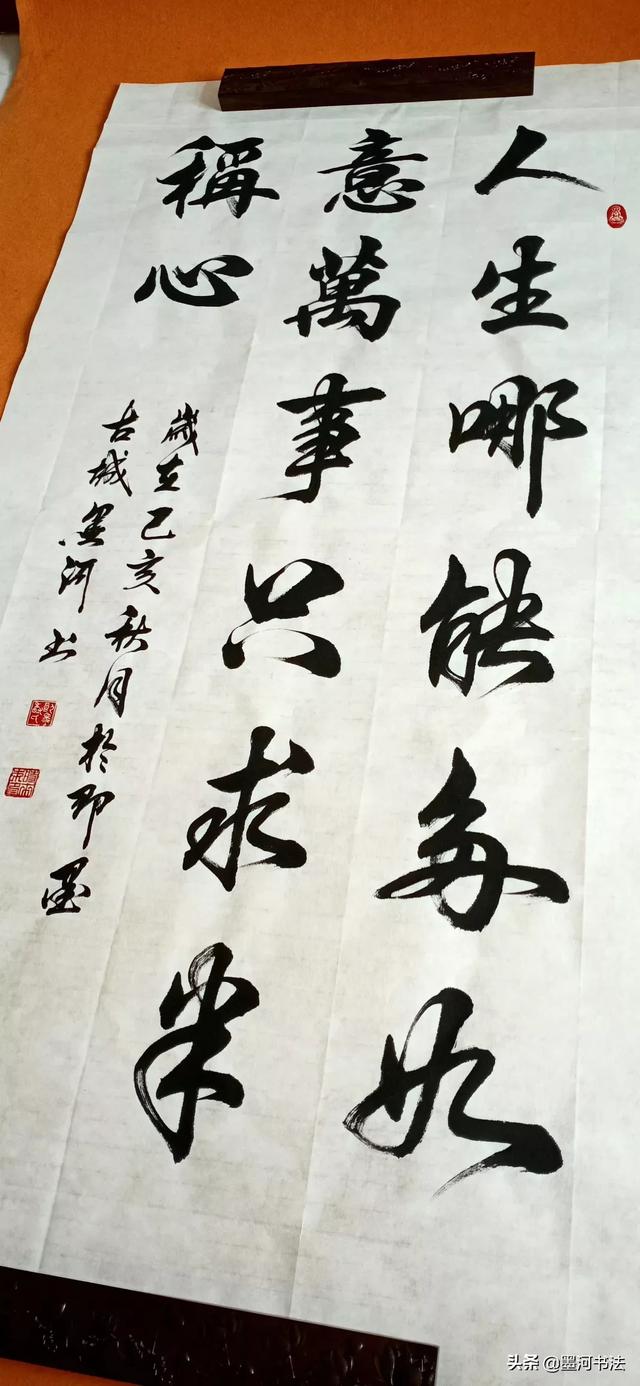 人生哪能多如
意萬事只求半
稱心
歲在己亥秋月於即墨
古城墨河书
头条 @墨河书法